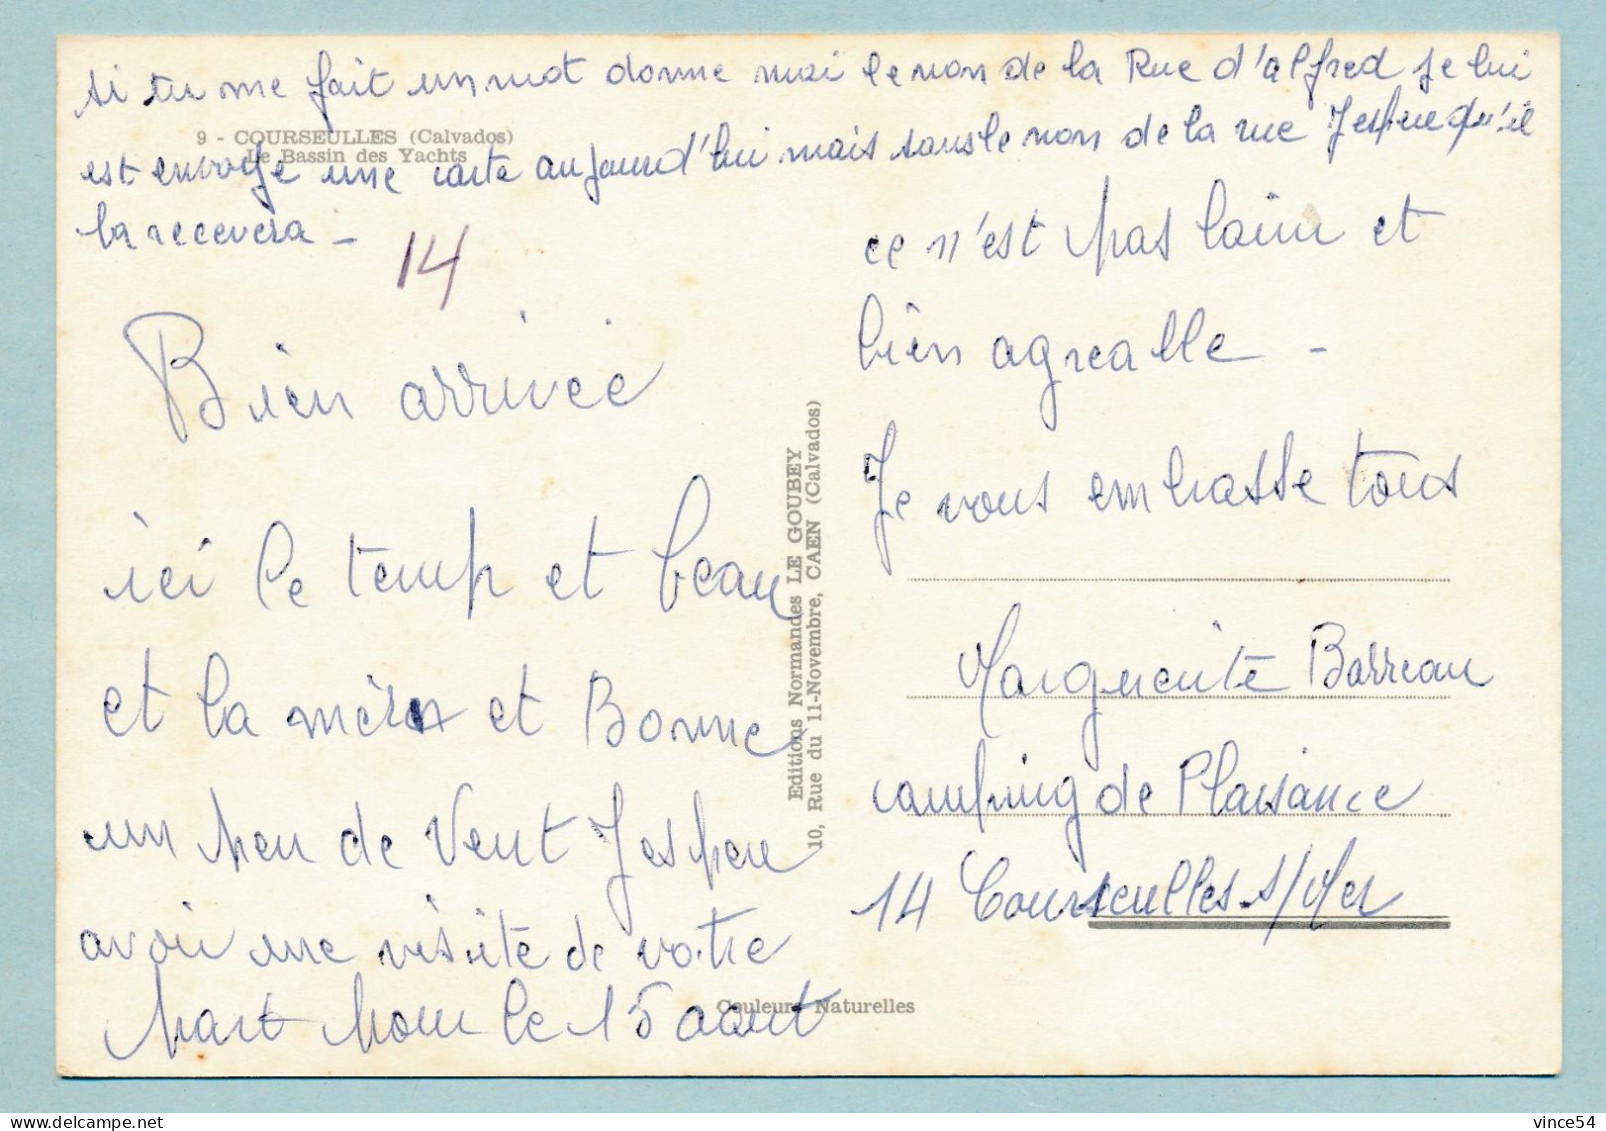 si tu me fait un mot donne moi le nom de la Rue d'alfred je lui
9 - COURSEULLES (Calvados)
Le Bassin des Yachts
est envoye une carte aujourd'hui mais sans le nom de la rue J espere qu'il
la recevera -
14
Bien arrivee
ici le temp et beau
et la mèr et Bonne
un peu de Vent J espere
avoir une visite de votre
part pour le 15 aout
Editions Normandes LE GOUBEY
10, Rue du 11-Novembre, CAEN (Calvados)
Couleurs Naturelles
ce n'est pas loin et
bien agrealle -
Je vous embrasse tous
Marguerite Barreau
camping de Plaisance
14 Courseulles s/Mer
delcampe.net
vince54